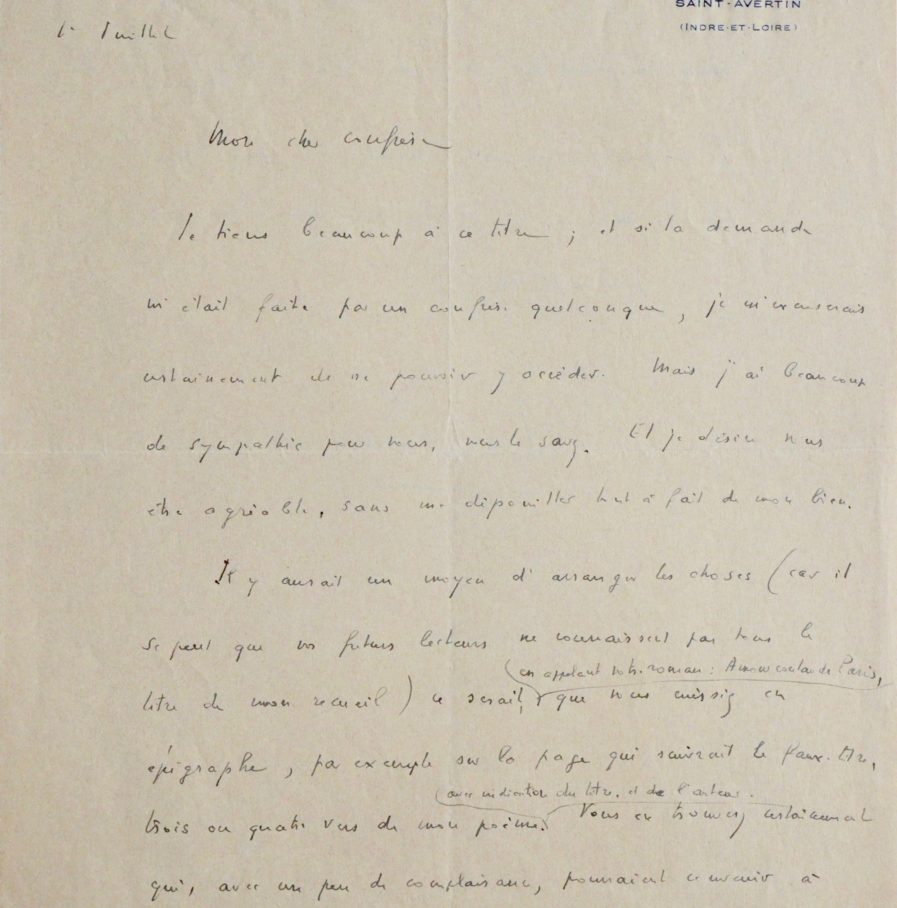 SAINT-AVERTIN
(INDRE-ET-LOIRE)
Juillet
Mon cher confrère
Je tiens beaucoup à ce titre ; et si la demande
m'était faite par un confrère quelconque, je m'excuserais
certainement de ne pouvoir y accéder. Mais j'ai beaucoup
de sympathie pour vous, vous le savez. Et je désire vous
être agréable, sans me dépouiller tout à fait de mon bien.
Il y aurait un moyen d'arranger les choses (car il
se peut que vos futurs lecteurs ne connaissent pas tous le
en appelant votre roman : Amour couleur de Paris,
titre de mon recueil) ce serait, que vous missiez en
épigraphe, par exemple sur la page qui suivrait le faux-titre,
avec indication du titre, et de l'auteur.
trois ou quatre vers de mon poème. Vous en trouverez certainement
qui, avec un peu de complaisance, pourraient convenir à